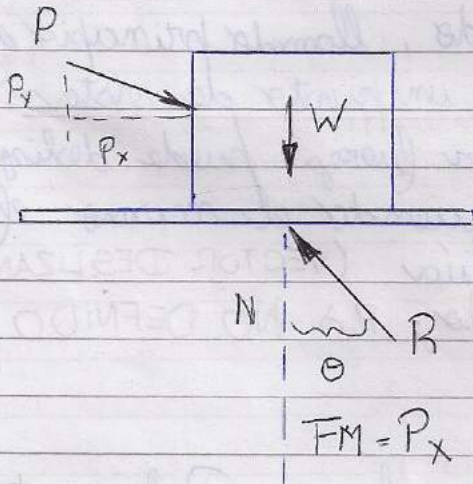 P
Py
Px
W
N
R
θ
FM = Px